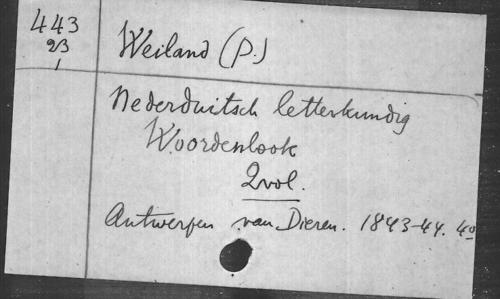 443
23
1
Weiland (P.)
Nederduitsch letterkundig
Woordenboek
2vol.
Antwerpen van Dieren. 1843-44. 4o